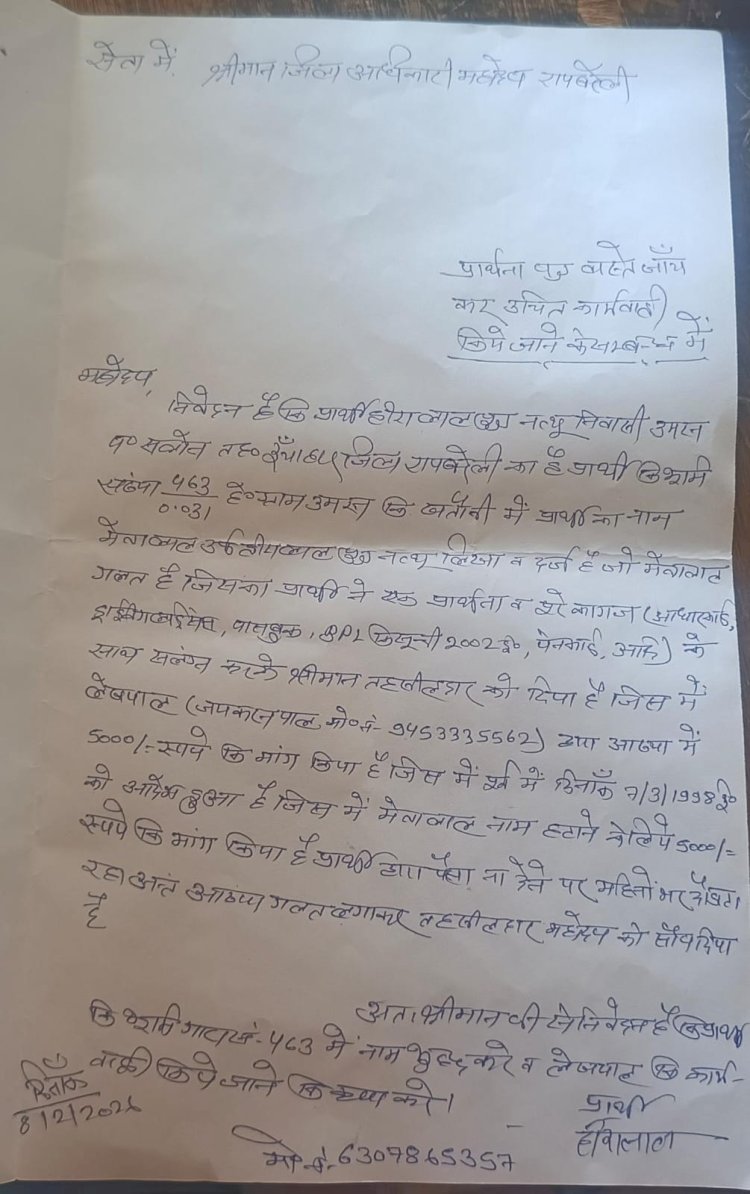 सेवा में, श्रीमान जिला अधिकारी महोदय रायबरेली
प्रार्थना पत्र वास्ते जाँच
कर उचित कार्यवाही
किये जाने के सम्बन्ध में
महोदय,
निवेदन है कि प्रार्थी हीरालाल पुत्र नत्थू निवासी उमरन
प० सलोन तह० ऊँचाहार जिला रायबरेली का है प्रार्थी कि भूमि
संख्या 463/0.031 हे० ग्राम उमरन कि खतौनी में प्रार्थी का नाम
मेवालाल उर्फ हीरालाल पुत्र नत्थू लिखा व दर्ज है जो मेवालाल
गलत है जिसका प्रार्थी ने एक प्रार्थना व पूरे कागज (आधारकार्ड,
ड्राईविंग लाईसेंस, पासबुक, BPL कि सूची 2002 ई०, पेनकार्ड, आदि) के
साथ संलग्न करके श्रीमान तहसीलदार को दिया है जिस में
लेखपाल (जयकरन पाल, मो० नं- 9453335562) द्वारा आख्या में
5000/= रूपये कि मांग किया है जिस में पूर्व में दिनाँक 7/3/1998 ई०
को आदेश हुआ है जिस में मेवालाल नाम हटाने के लिये 5000/=
रूपये कि मांग किया है प्रार्थी द्वारा पैसा ना देने पर महिनों भर
रहा अंत आख्या गलत लगाकर तहसीलदार महोदय को सौंप दिया
है
अतः श्रीमान जी से निवेदन है कि प्रार्थी
कि भूमि गाटा सं- 463 में नाम शुद्ध करे व लेखपाल कि कार्य-
वाही किये जाने कि कृपा करे।
दिनाँक
8/2/2026
प्रार्थी
हीरालाल
मो० नं- 6307865357